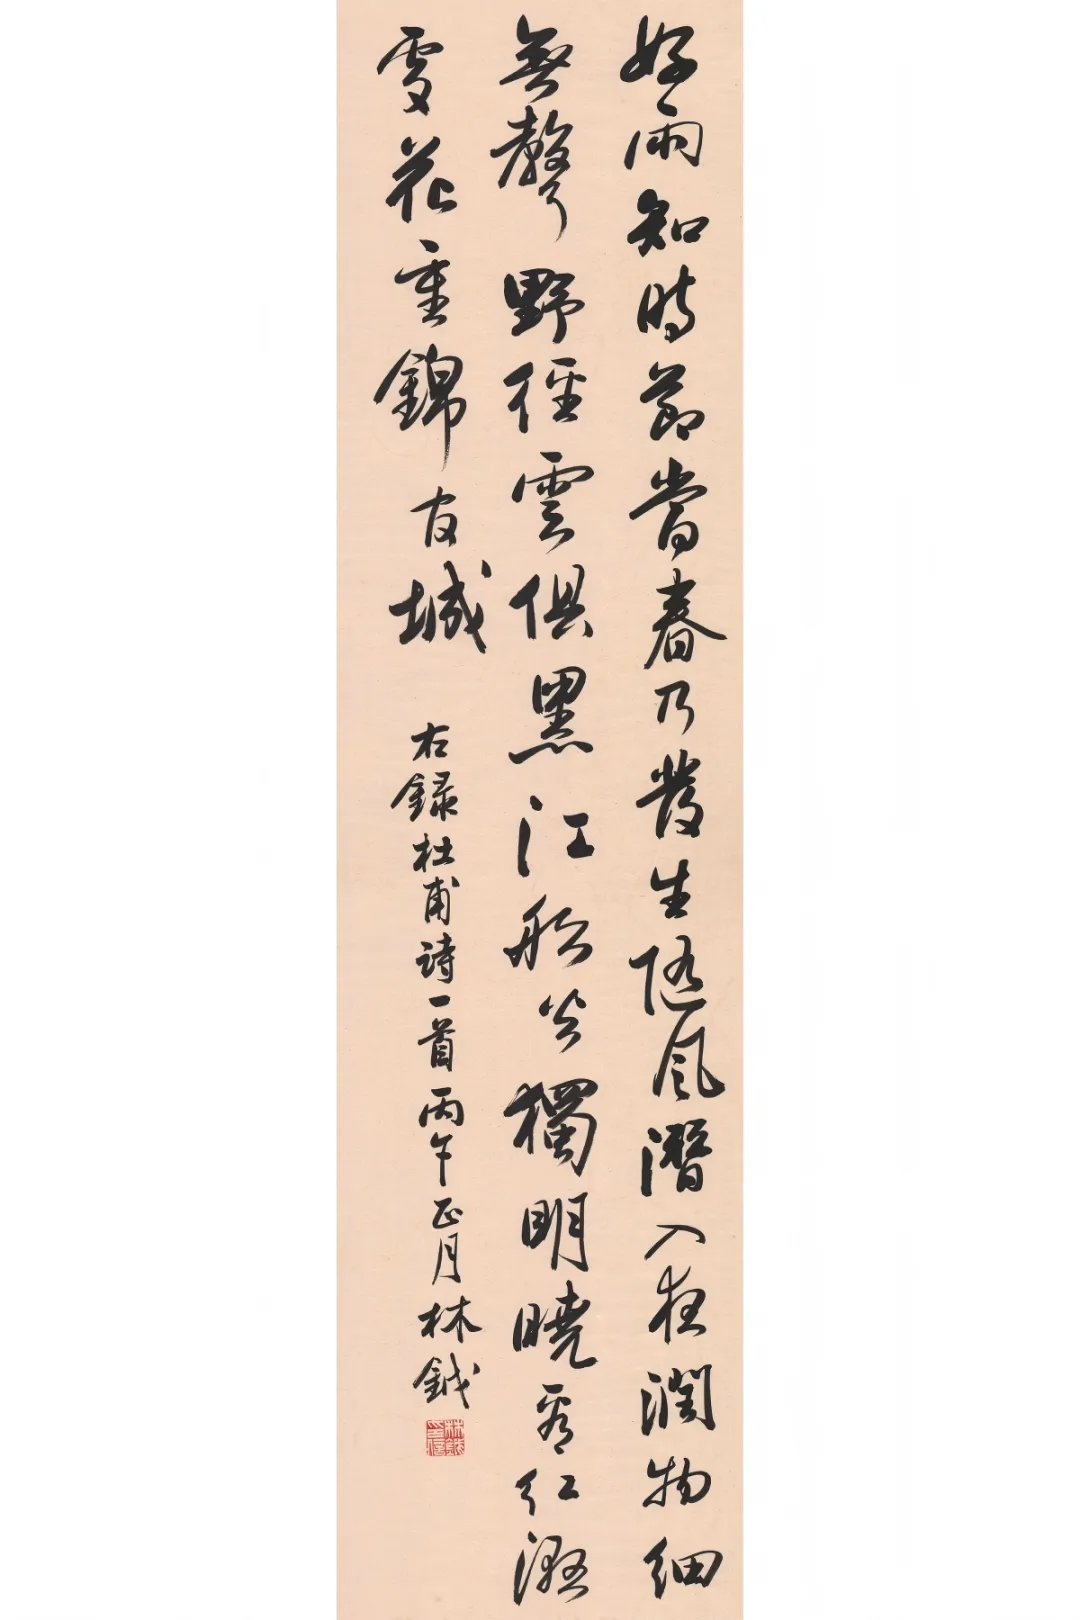 好雨知時節當春乃發生随風潛入夜潤物細
無聲野徑雲俱黑江船火獨明曉看紅濕
處花重錦官城
右録杜甫诗一首丙午正月林鉞